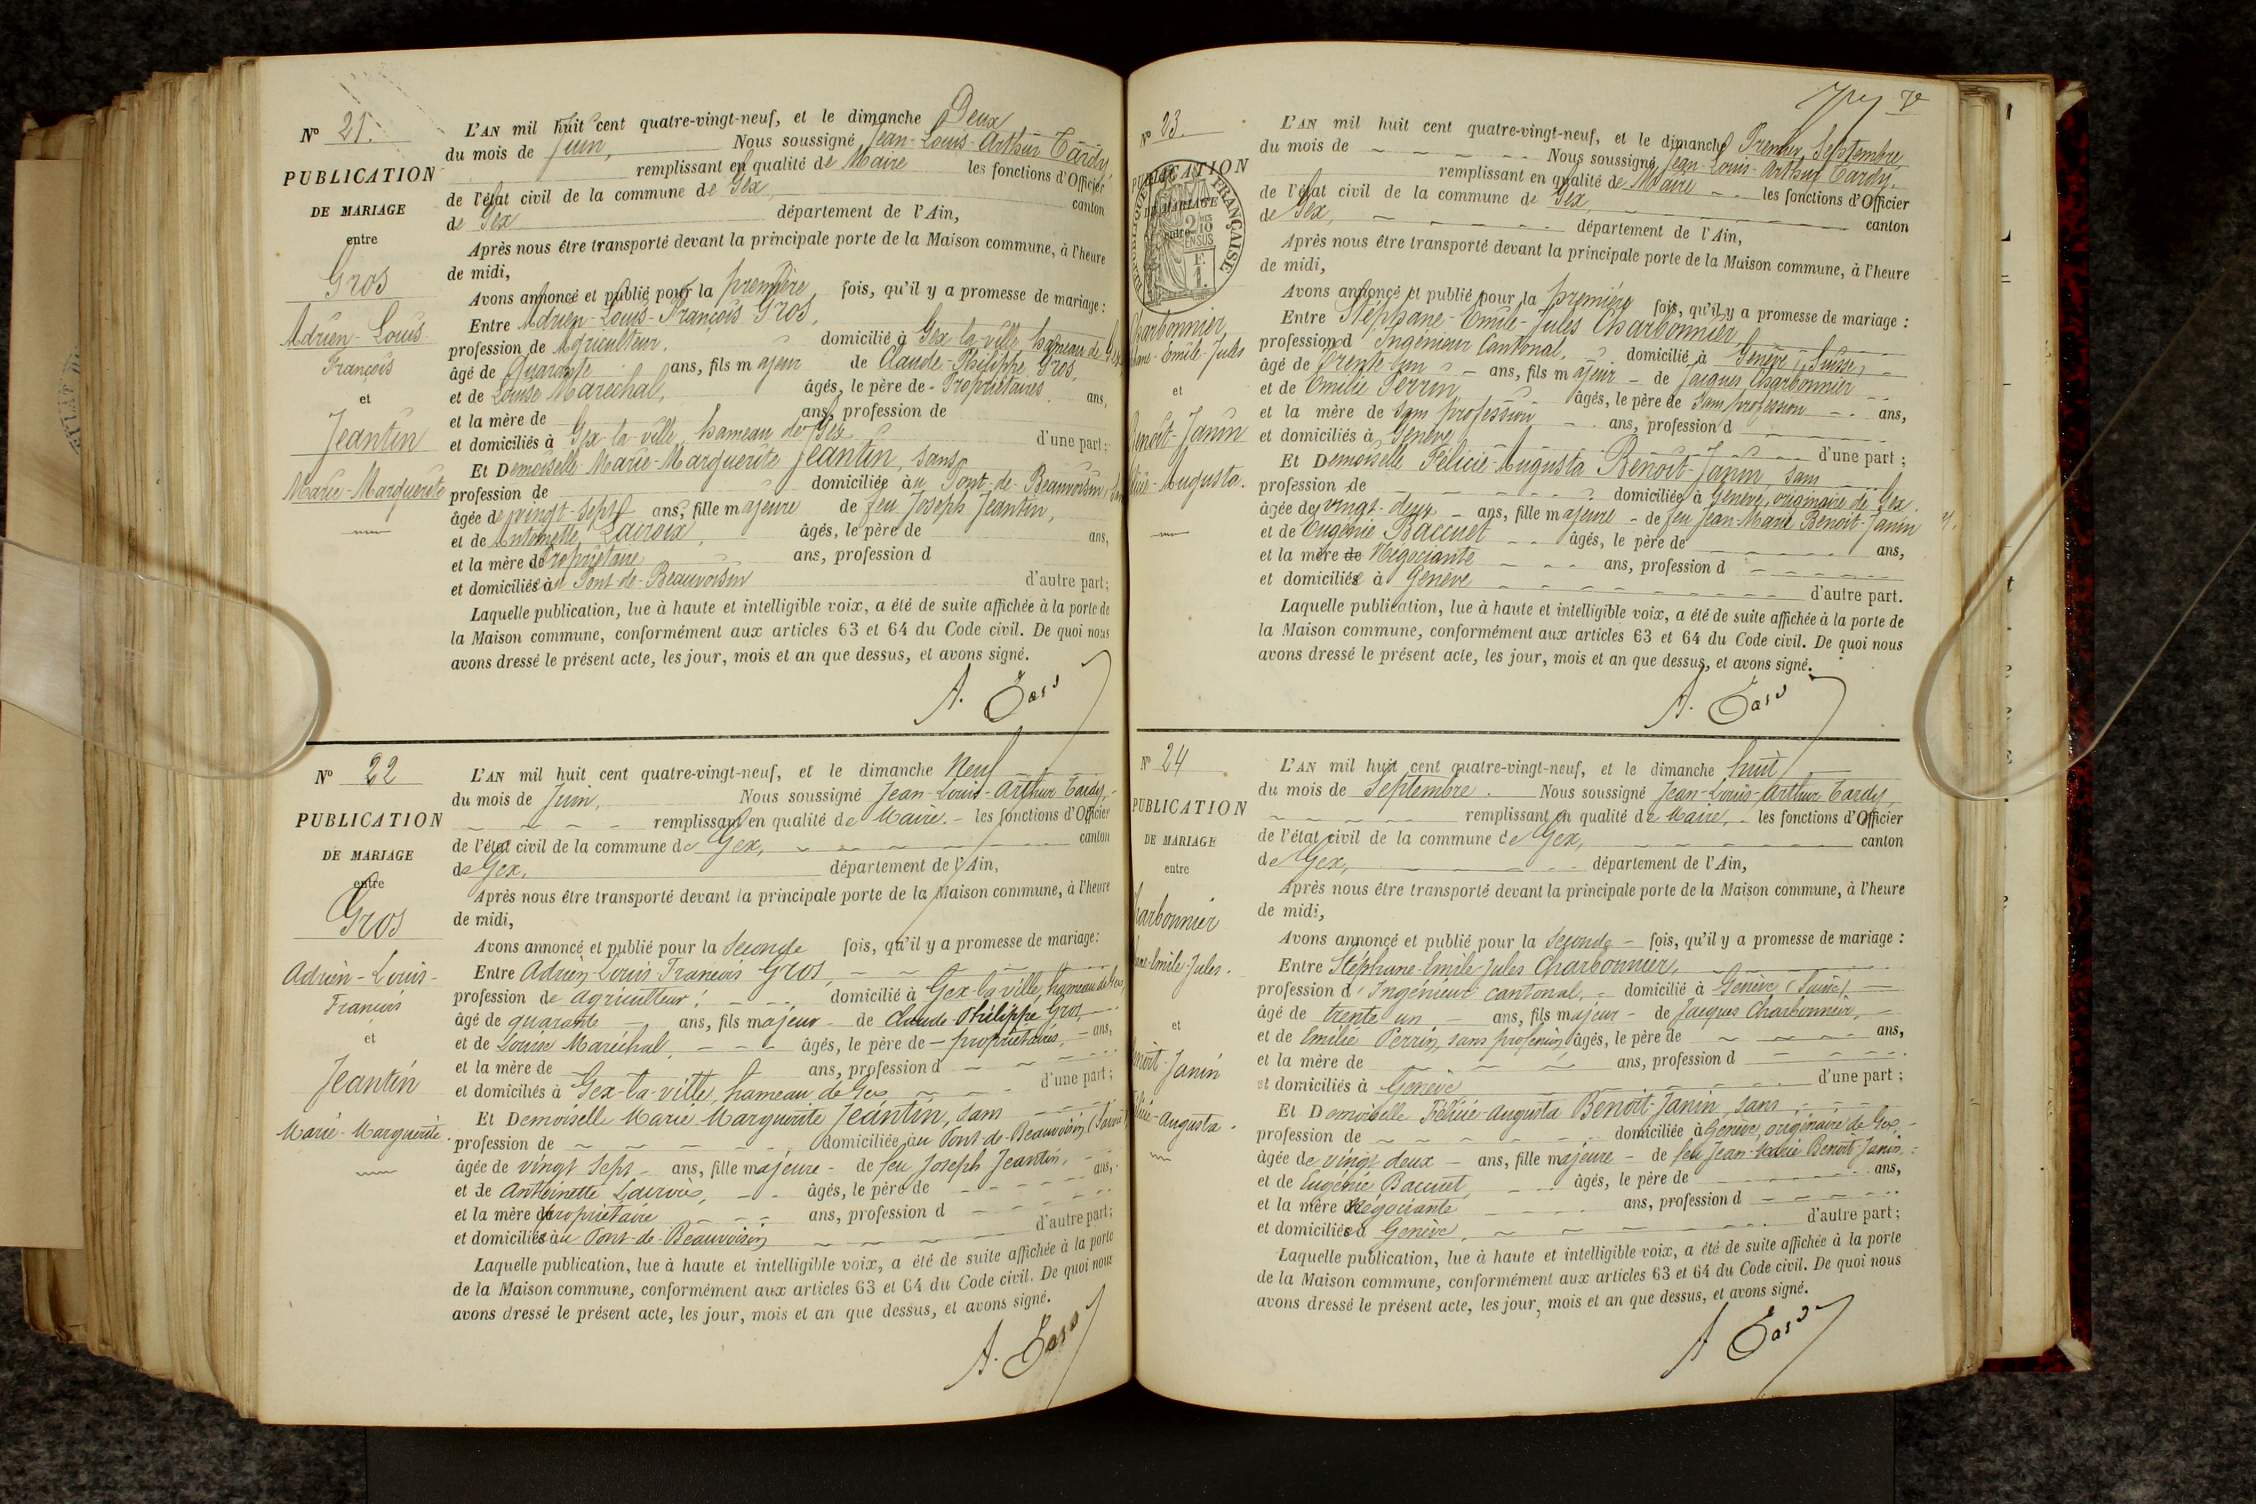 N° 21.
PUBLICATION
DE MARIAGE
entre
Gros
Adrien-Louis
François
et
Jeantin
Marie-Marguerite
L'AN mil huit cent quatre-vingt-neuf, et le dimanche Deux
du mois de Juin, Nous soussigné Jean-Louis-Arthur Tardy,
remplissant en qualité de Maire les fonctions d'Officier
de l'état civil de la commune de Gex, canton
de Gex département de l'Ain,
Après nous être transporté devant la principale porte de la Maison commune, à l'heure
de midi,
Avons annoncé et publié pour la première fois, qu'il y a promesse de mariage :
Entre Adrien-Louis-François Gros,
profession de Agriculteur, domicilié à Gex-la-ville hameau de Gex
âgé de Quarante ans, fils majeur de Claude-Philippe Gros,
et de Louise Maréchal, âgés, le père de - Propriétaires ans,
et la mère de ans, profession de
et domiciliés à Gex la ville, hameau de Gex d'une part ;
Et Demoiselle Marie-Marguerite Jeantin, sans
profession de domiciliée au Pont-de-Beauvoisin,
âgée de vingt-sept ans, fille majeure de feu Joseph Jeantin,
et de Antoinette Lacroix, âgés, le père de ans,
et la mère de Propriétaire ans, profession d
et domiciliés au Pont-de-Beauvoisin d'autre part ;
Laquelle publication, lue à haute et intelligible voix, a été de suite affichée à la porte de
la Maison commune, conformément aux articles 63 et 64 du Code civil. De quoi nous
avons dressé le présent acte, les jour, mois et an que dessus, et avons signé.
A. Tardy
N° 22
PUBLICATION
DE MARIAGE
entre
Gros
Adrien-Louis-
François
et
Jeantin
Marie-Marguerite.
L'AN mil huit cent quatre-vingt-neuf, et le dimanche Neuf
du mois de Juin, Nous soussigné Jean-Louis-Arthur Tardy,
remplissant en qualité de Maire. - les fonctions d'Officier
de l'état civil de la commune de Gex, canton
de Gex, département de l'Ain,
Après nous être transporté devant la principale porte de la Maison commune, à l'heure
de midi,
Avons annoncé et publié pour la seconde fois, qu'il y a promesse de mariage :
Entre Adrien Louis François Gros,
profession de agriculteur, domicilié à Gex-la-ville, hameau de Gex,
âgé de quarante ans, fils majeur de Claude-Philippe Gros,
et de Louise Maréchal, âgés, le père de - propriétaires, - ans,
et la mère de ans, profession d
et domiciliés à Gex-la-ville, hameau de Gex d'une part ;
Et Demoiselle Marie Marguerite Jeantin, sans
profession de domiciliée au Pont-de-Beauvoisin
âgée de vingt sept ans, fille majeure - de feu Joseph Jeantin,
et de Antoinette Lacroix, âgés, le père de ans,
et la mère de propriétaire ans, profession d
et domiciliés au Pont-de-Beauvoisin d'autre part ;
Laquelle publication, lue à haute et intelligible voix, a été de suite affichée à la porte
de la Maison commune, conformément aux articles 63 et 64 du Code civil. De quoi nous
avons dressé le présent acte, les jour, mois et an que dessus, et avons signé.
A. Tardy
N° 23.
PUBLICATION
DE MARIAGE
FRANÇAISE
Charbonnier
Emile-Jules
et
Benoit-Janin
Augusta.
L'AN mil huit cent quatre-vingt-neuf, et le dimanche Premier Septembre
du mois de Nous soussigné Jean-Louis-Arthur Tardy,
remplissant en qualité de Maire les fonctions d'Officier
de l'état civil de la commune de Gex, canton
de Gex, département de l'Ain,
Après nous être transporté devant la principale porte de la Maison commune, à l'heure
de midi,
Avons annoncé et publié pour la première fois, qu'il y a promesse de mariage :
Entre Stéphane-Emile-Jules Charbonnier,
profession d'Ingénieur Cantonal, domicilié à Genève (Suisse)
âgé de Trente un ans, fils majeur - de Jacques Charbonnier
et de Emilie Perrin âgés, le père de sans profession ans,
et la mère de sans profession ans, profession d
et domiciliés à Genève d'une part ;
Et Demoiselle Félicie-Augusta Benoit-Janin, sans
profession de domiciliée à Genève, originaire de Gex.
âgée de vingt-deux - ans, fille majeure - de feu Jean-Marie Benoit-Janin
et de Eugénie Baccuet âgés, le père de ans,
et la mère de Négociante ans, profession d
et domiciliés à Genève d'autre part.
Laquelle publication, lue à haute et intelligible voix, a été de suite affichée à la porte de
la Maison commune, conformément aux articles 63 et 64 du Code civil. De quoi nous
avons dressé le présent acte, les jour, mois et an que dessus, et avons signé.
A. Tardy
N° 24
PUBLICATION
DE MARIAGE
entre
Charbonnier
Emile-Jules.
et
Benoît-Janin
Augusta.
L'AN mil huit cent quatre-vingt-neuf, et le dimanche huit
du mois de Septembre. Nous soussigné Jean-Louis-Arthur Tardy,
remplissant en qualité de Maire, les fonctions d'Officier
de l'état civil de la commune de Gex, canton
de Gex, département de l'Ain,
Après nous être transporté devant la principale porte de la Maison commune, à l'heure
de midi,
Avons annoncé et publié pour la seconde - fois, qu'il y a promesse de mariage :
Entre Stéphane-Emile-Jules Charbonnier,
profession d'Ingénieur cantonal, domicilié à Genève (Suisse)
âgé de trente un ans, fils majeur - de Jacques Charbonnier,
et de Emilie Perrin, sans profession âgés, le père de ans,
et la mère de ans, profession d
et domiciliés à Genève d'une part ;
Et Demoiselle Félicie-Augusta Benoît-Janin, sans
profession de domiciliée à Genève, originaire de Gex,
âgée de vingt deux - ans, fille majeure - de feu Jean-Marie Benoît-Janin
et de Eugénie Baccuet, âgés, le père de ans,
et la mère Négociante ans, profession d
et domiciliés à Genève, d'autre part ;
Laquelle publication, lue à haute et intelligible voix, a été de suite affichée à la porte
de la Maison commune, conformément aux articles 63 et 64 du Code civil. De quoi nous
avons dressé le présent acte, les jour, mois et an que dessus, et avons signé.
A Tardy